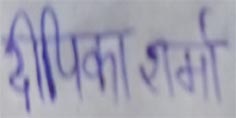 दीपिका शर्मा